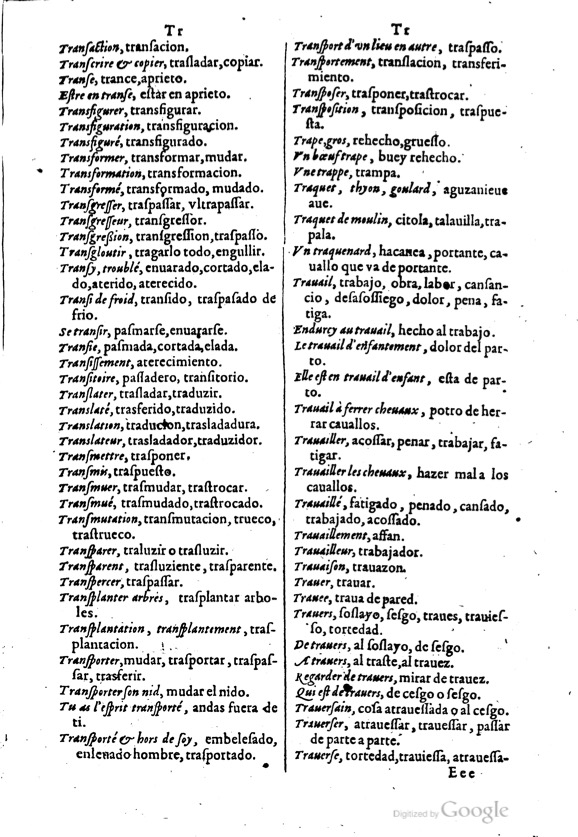 Tr
Transaction, transacion.
Transcrire & copier, trasladar, copiar.
Transe, trance, aprieto.
Estre en transe, estar en aprieto.
Transfigurer, transfigurar.
Transfiguration, transfiguracion.
Transfiguré, transfigurado.
Transformer, transformar, mudar.
Transformation, transformacion.
Transformé, transformado, mudado.
Transgresser, traspassar, vltrapassar.
Transgresseur, transgressor.
Transgression, transgression, traspasso.
Transgloutir, tragarlo todo, engullir.
Transy, troublé, enuarado, cortado, ela-
do, aterido, aterecido.
Transi de froid, transido, traspasado de
frio.
Se transir, pasmarse, enuararse.
Transie, pasmada, cortada, elada.
Transissement, aterecimiento.
Transitoire, passadero, transitorio.
Translater, trasladar, traduzir.
Translaté, trasferido, traduzido.
Translation, traducion, trasladadura.
Translateur, trasladador, traduzidor.
Transmettre, trasponer.
Transmis, traspuesto.
Transmuer, trasmudar, trastrocar.
Transmué, trasmudado, trastrocado.
Transmutation, transmutacion, trueco,
trastrueco.
Transparer, traluzir o trasluzir.
Transparent, trasluziente, trasparente.
Transpercer, traspassar.
Transplanter arbres, trasplantar arbo-
les.
Transplantation, transplantement, tras-
plantacion.
Transporter, mudar, trasportar, traspas-
sar, trasferir.
Transporter son nid, mudar el nido.
Tu as l'esprit transporté, andas fuera de
ti.
Transporté & hors de soy, embelesado,
enlenado hombre, trasportado.
Tr
Transport d'vn lieu en autre, traspasso.
Transportement, translacion, transferi-
miento.
Transposer, trasponer, trastrocar.
Transposition, transposicion, traspue-
sta.
Trape, gros, rehecho, gruesso.
Vn bœuf trape, buey rehecho.
Vne trappe, trampa.
Traquet, thyon, goulard, aguzanieue
aue.
Traquet de moulin, citola, tarauilla, tra-
pala.
Vn traquenard, hacanea, portante, ca-
uallo que va de portante.
Trauail, trabajo, obra, labor, cansan-
cio, desassossiego, dolor, pena, fa-
tiga.
Endurcy au trauail, hecho al trabajo.
Le trauail d'enfantement, dolor del par-
to.
Elle est en trauail d'enfant, esta de par-
to.
Trauail à ferrer cheuaux, potro de her-
rar cauallos.
Trauailler, acossar, penar, trabajar, fa-
tigar.
Trauailler les cheuaux, hazer mal a los
cauallos.
Trauaillé, fatigado, penado, cansado,
trabajado, acossado.
Trauaillement, affan.
Trauailleur, trabajador.
Trauaison, trauazon.
Trauer, trauar.
Trauee, traua de pared.
Trauers, soslayo, sesgo, traues, trauies-
so, tortedad.
De trauers, al soslayo, de sesgo.
A trauers, al traste, al trauez.
Regarder de trauers, mirar de trauez.
Qui est de trauers, de cesgo o sesgo.
Trauersain, cosa atrauessada o al cesgo.
Trauerser, atrauessar, trauessar, passar
de parte a parte.
Trauerse, tortedad, trauiessa, atrauessa-
Eee
Digitized by Google